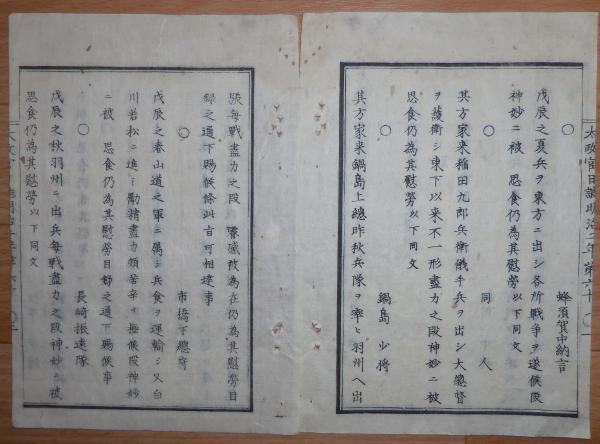 太政官日誌明治二年第六十
〇 蜂須賀中納言
戊辰之夏兵ヲ東方ニ出シ各所戰爭ヲ遂候段
神妙ニ被 思食仍為其慰勞以下同文
〇 同 人
其方家来稲田九郎兵衛儀手兵ヲ出シ大總督
ヲ護衛シ東下以来不一形盡力之段神妙ニ被
思食仍為其慰勞以下同文
〇 鍋島少將
其方家来鍋島上總昨秋兵隊ヲ率ヒ羽州ヘ出
張每戰盡力之段 叡感被為在仍為其慰勞目
録之通下賜候條此旨可相達事
〇 市橋下總守
戊辰之春山道之軍ニ屬シ兵食ヲ運輸シ又白
川若松ニ進ミ勵精盡力頗苦辛ヲ極候段神妙
ニ被 思食仍為其慰勞之通下賜候事
〇 長崎振遠隊
戊辰之秋羽州ニ出兵每戰盡力之段神妙ニ被
思食仍為其慰勞以下同文